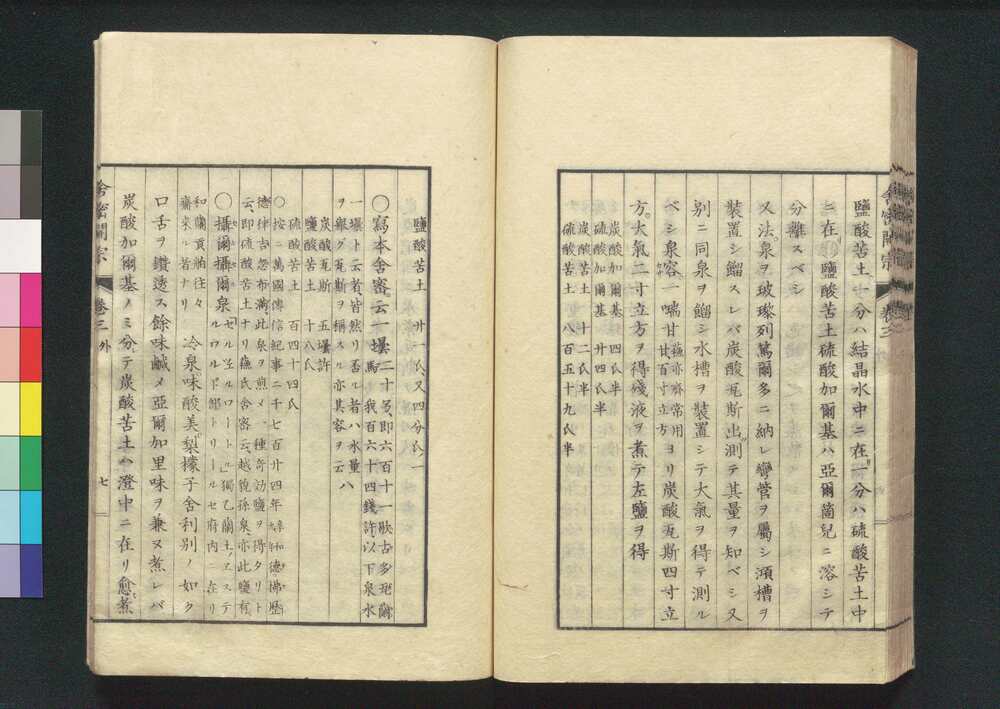 鹽酸苦土、十分ハ結晶水中ニ在、一分ハ硫酸苦土中
ニ在 鹽酸苦土硫酸加爾基ハ亞爾箇兒ニ溶シテ
分離スベシ
又法。泉ヲ玻瓈列篤爾多ニ納レ彎管ヲ屬シ澒槽ヲ
装置シ餾スレバ炭酸瓦斯出。測テ其量ヲ知ベシ又
別ニ同泉ヲ餾シ水槽ヲ装置シテ大氣ヲ得テ測ル
ベシ泉容一喘甘 蘊亦齊常用 廿百寸立方 ヨリ炭酸瓦斯四寸立
方。大氣二寸立方ヲ得殘液ヲ煮テ左鹽ヲ得
炭酸加爾基 四氏半
硫酸加爾基 廿四氏半
炭酸苦土 十二氏半
硫酸苦土 八百五十九氏半
舎密開宗 卷三
鹽酸苦土 廿一氏又四分氏一
○寫本舎密云一壜 二十 即六百十一 古多玭爾
馬 我百六十四錢許 以下泉水
一壜ト云者皆然リ否ル者ハ水量
ヲ擧グ瓦斯ヲ稱スル亦其容ヲ云
炭酸瓦斯 五壜許
鹽酸苦土 十八氏
硫酸苦土 百四十四氏
○按ニ萬國傳信紀事二千七百廿四年 和 德 拂歴
德律古怨布滿此泉ヲ煎メ一種奇効鹽ヲ得タリト
云即硫酸苦土ナリ 氏舎密云越貌孫泉亦此鹽有
○攝爾攝爾泉 ゼルツェルロート 獨乙蘭土ノヱステ
ルロルド部トリールセ府内ニ在リ
和蘭貢舶往々
齎來ル若ナリ 冷泉味酸美梨檬子舎利別ノ如ク
口舌ヲ鑚透ス餘味鹹メ亞爾加里味ヲ兼ヌ煮レバ
炭酸加爾基ノミ分テ炭酸苦土ハ澄中ニ在リ愈煮
舎密開宗 卷三 外 七